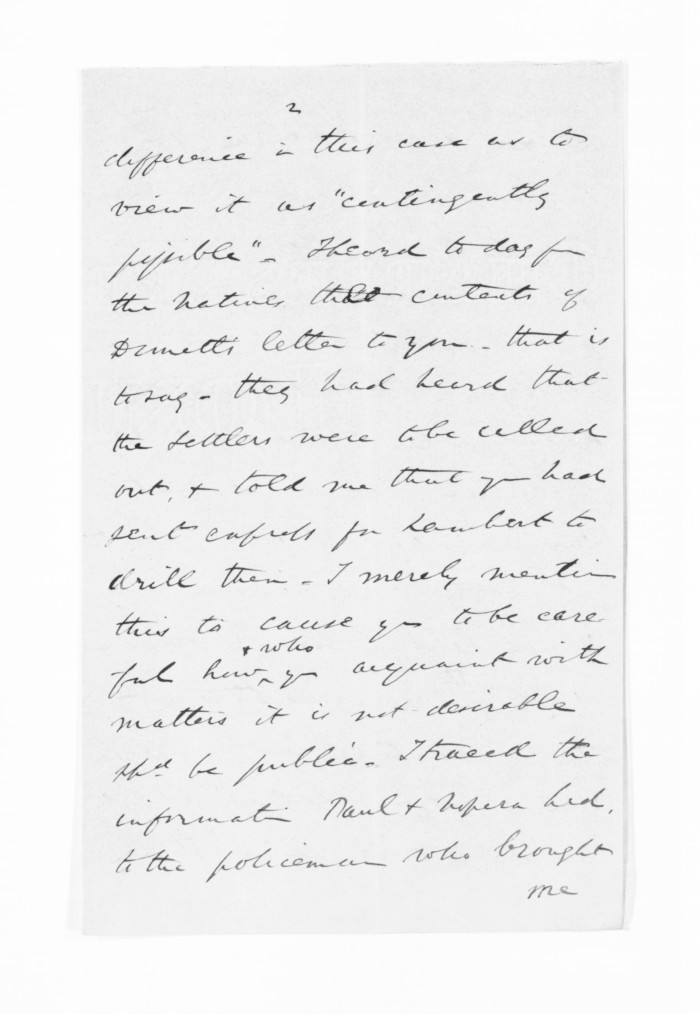 2
difference in this case as to
view it as "contingently
possible" - I heard to day fm
the natives the contents of
Domett's letter to you - that is
to say - they had heard that
the settlers were to be called
out, & told me that you had
sent express for Lambert to
drill them - I merely mention
this to cause you to be care
ful how & who you acquaint with
matters it is not desirable
shd be public - I traced the
information Paul & Nopera had,
to the policeman who brought
me